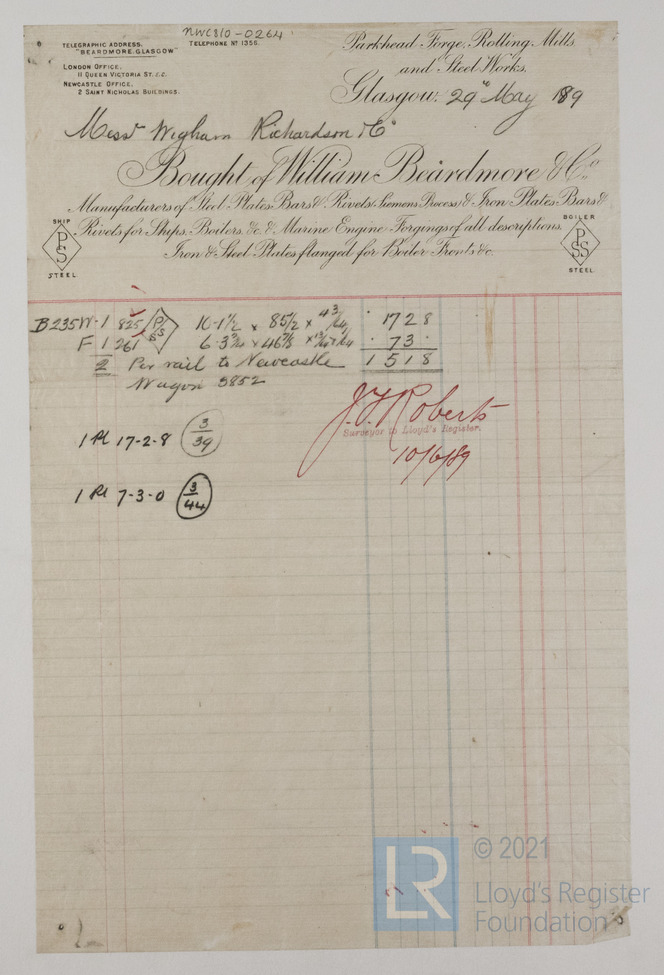 NWC810-0264
TELEGRAPHIC ADDRESS.
"BEARDMORE, GLASGOW"
TELEPHONE Nº 1356.
LONDON OFFICE,
11 QUEEN VICTORIA ST. E.C.
NEWCASTLE OFFICE,
2 SAINT NICHOLAS BUILDINGS.
Parkhead Forge, Rolling Mills
and Steel Works.
Glasgow. 29th May 189
Messrs Wigham Richardson & Co
Bought of William Beardmore & Co.
Manufacturers of Steel Plates Bars & Rivets (Siemens Process) & Iron Plates Bars &
Rivets for Ships, Boilers, &c. & Marine Engine Forgings of all descriptions.
Iron & Steel Plates flanged for Boiler Fronts &c.
SHIP
PS
S
STEEL.
BOILER
P
SS
STEEL.
B235W·1 825 P/SS 16-1½ × 85½ × 1728
F 1 261 6·3 × 46⅞ × 73·
2 Per rail to Newcastle 1518
Wagon 3852
J.T. Roberts
Surveyor to Lloyd's Register.
10/6/89
1 Pl 17-2-8 3/39
1 Pl 7-3-0 3/44
LR
© 2021
Lloyd's Register
Foundation